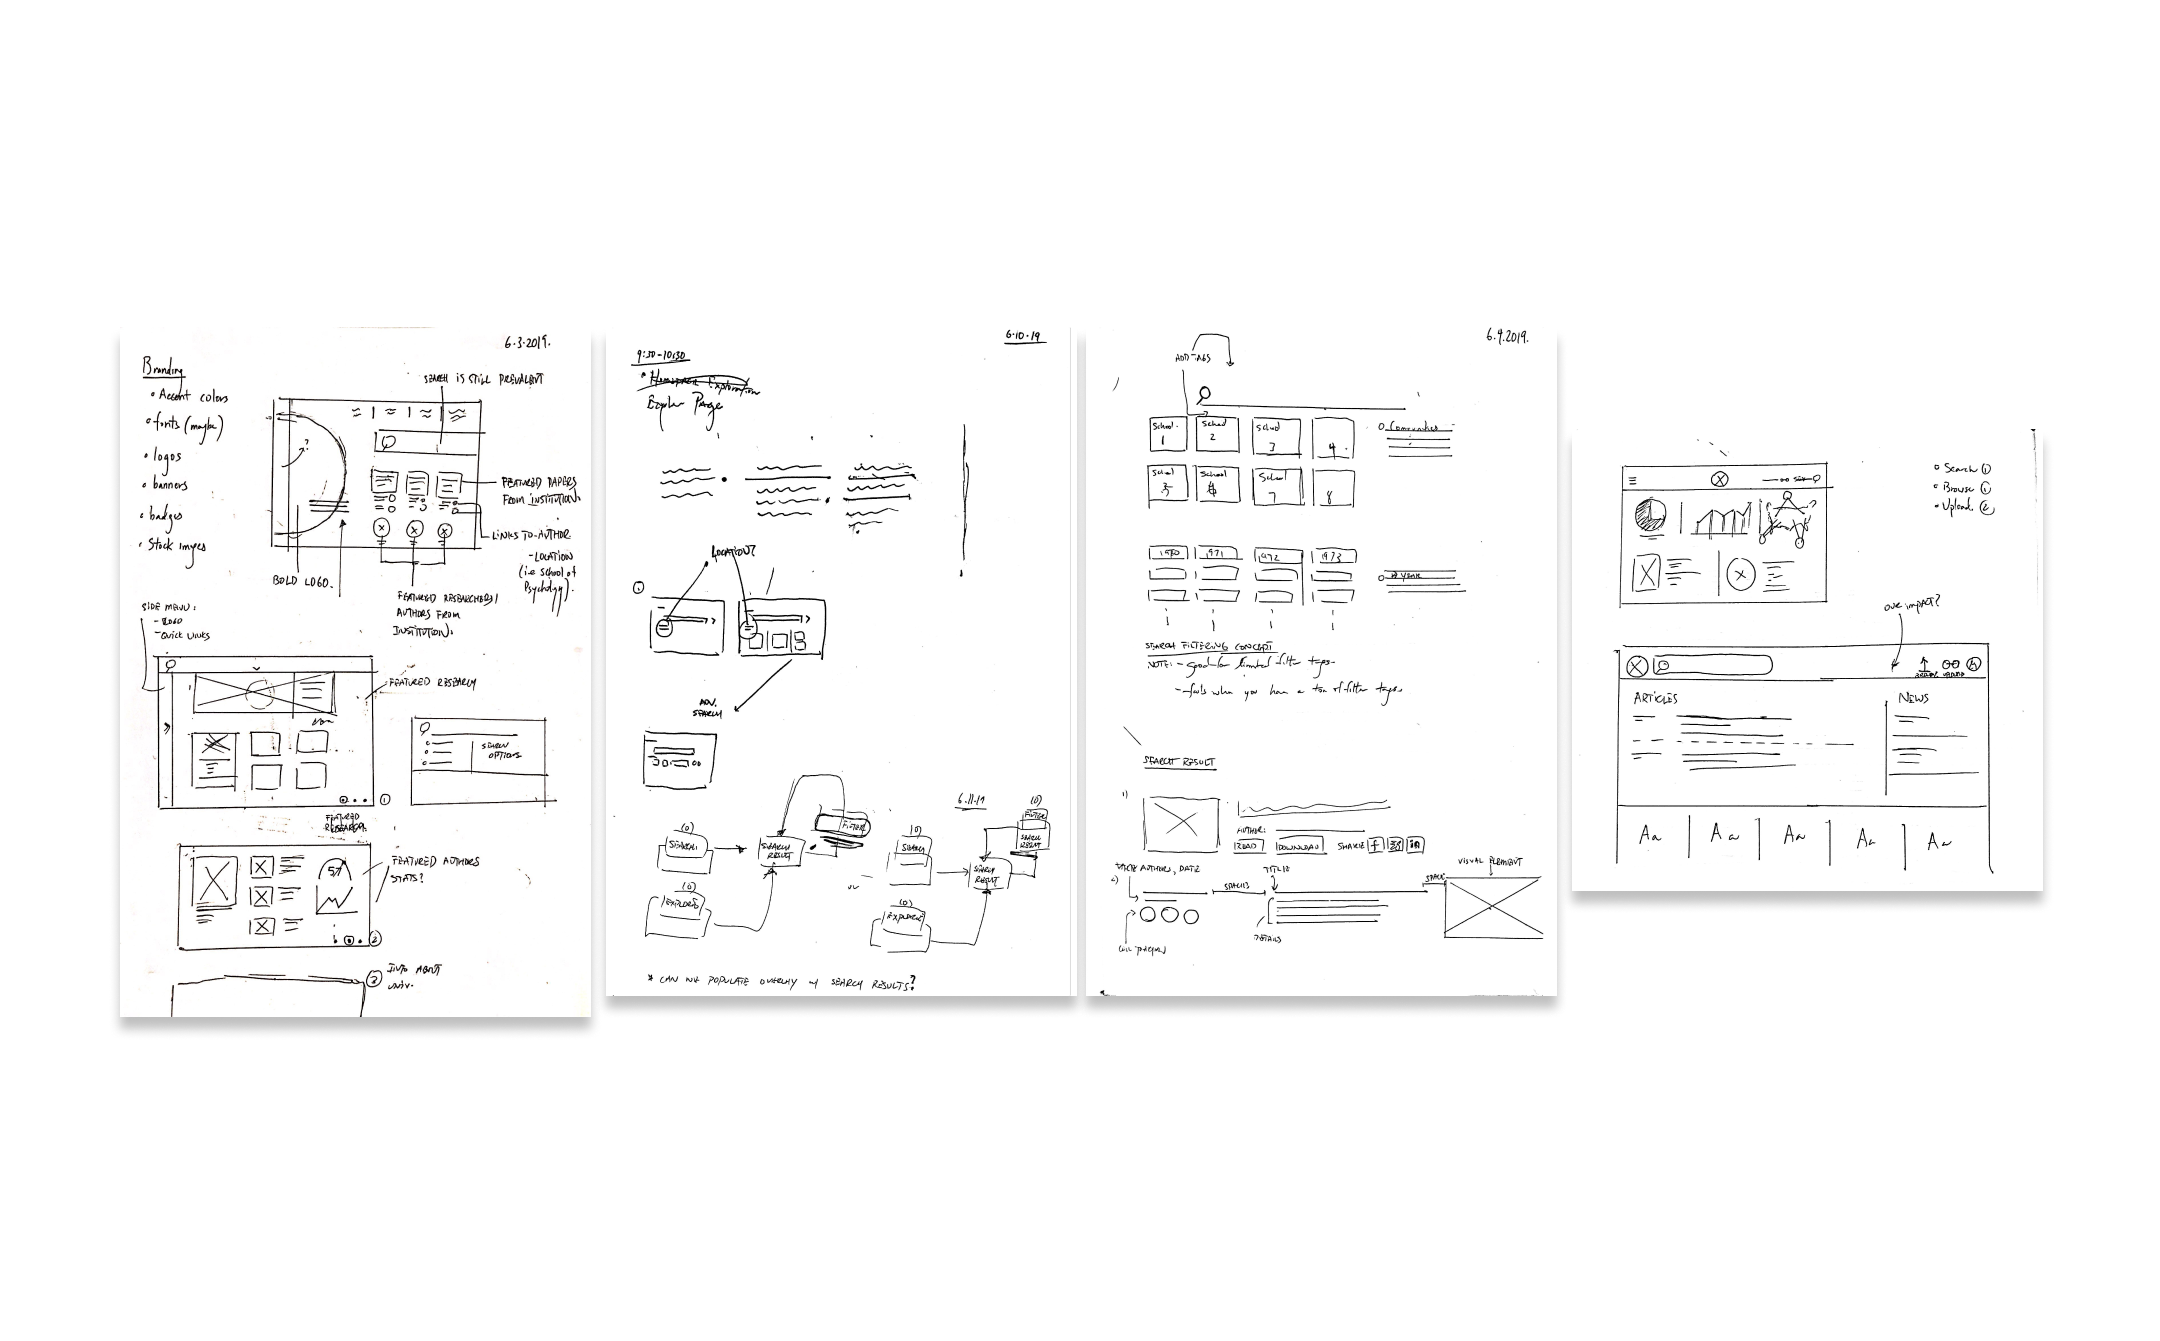 6.3.2019.
Branding
• Accent colors
• fonts (maybe)
• logos
• banners
• badges
• Stock images
SEARCH IS STILL PREVALENT
FEATURED PAPERS
FROM INSTITUTION.
LINKS TO AUTHOR
- LOCATION
(i.e school of
Psychology).
BOLD LOGO.
FEATURED RESEARCHERS/
AUTHORS FROM
INSTITUTION.
SIDE MENU:
- LOGO
- QUICK LINKS
FEATURED RESEARCH
1
SEARCH
OPTIONS
FEATURED
RESEARCH.
57
FEATURED AUTHORS
STATS?
2
3
INFO ABOUT
UNIV.
6.10.19
9:30-10:30
• Homepage Exploration
Explore Page
LOCATION?
ADV.
SEARCH
6.11.19
(0)
SEARCH
SEARCH
RESULT
FILTER
(0)
EXPLORE
(0)
SEARCH
(0)
FILTER
SEARCH
RESULT
SEARCH
RESULT
(0)
EXPLORE
* CAN WE POPULATE OVERLAY → SEARCH RESULTS?
6.9.2019.
ADD TAGS
School
1
School
2
School
3
4
Communities
School
5
School
6
School
7
8
1970
1971
1972
1973
YEAR
SEARCH FILTERING CONCEPT
NOTE: - good for limited filter tags
- fails when you have a ton of filter tags
SEARCH RESULT
1)
AUTHOR:
READ
DOWNLOAD
SHARE
f
in
2)
AUTHORS, DATE
SPACES
TITLE
SPACE
VISUAL ELEMENT
DETAILS
• Search 1
• Browse 1
• Upload 2
OUR IMPACT?
ARTICLES
NEWS
Aa
Aa
Aa
Aa
Aa